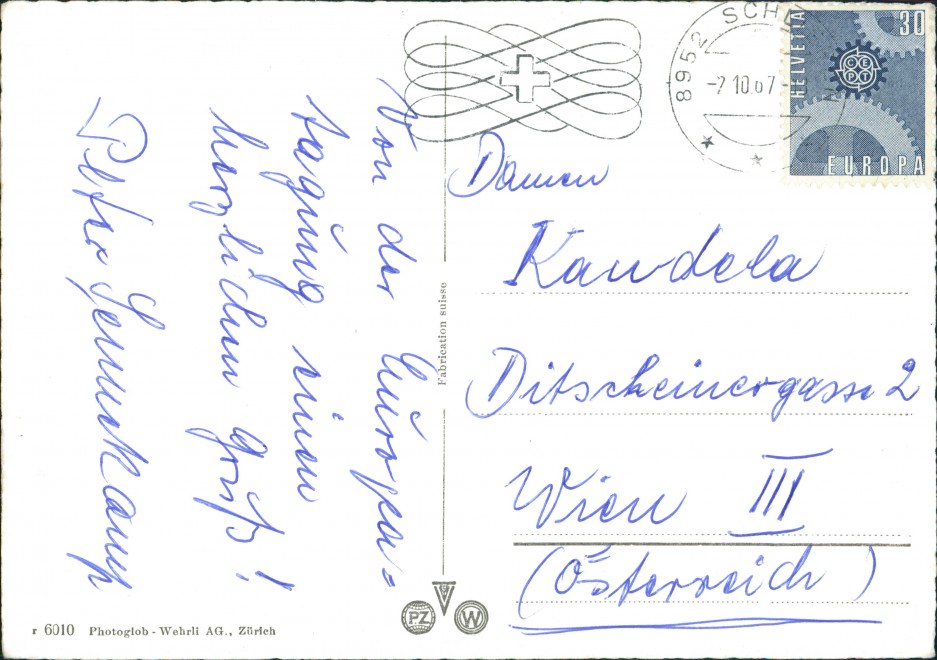 Von der Europa-
tagung einen
herzlichen Gruß!
Peter
Damen
Kandela
Ditscheinergasse 2
Wien III
(Österreich)
Fabrication suisse
r 6010 Photoglob - Wehrli AG., Zürich
PZ W
8952 SCHL
-7.10.67
HELVETIA
30
CEPT
EUROPA